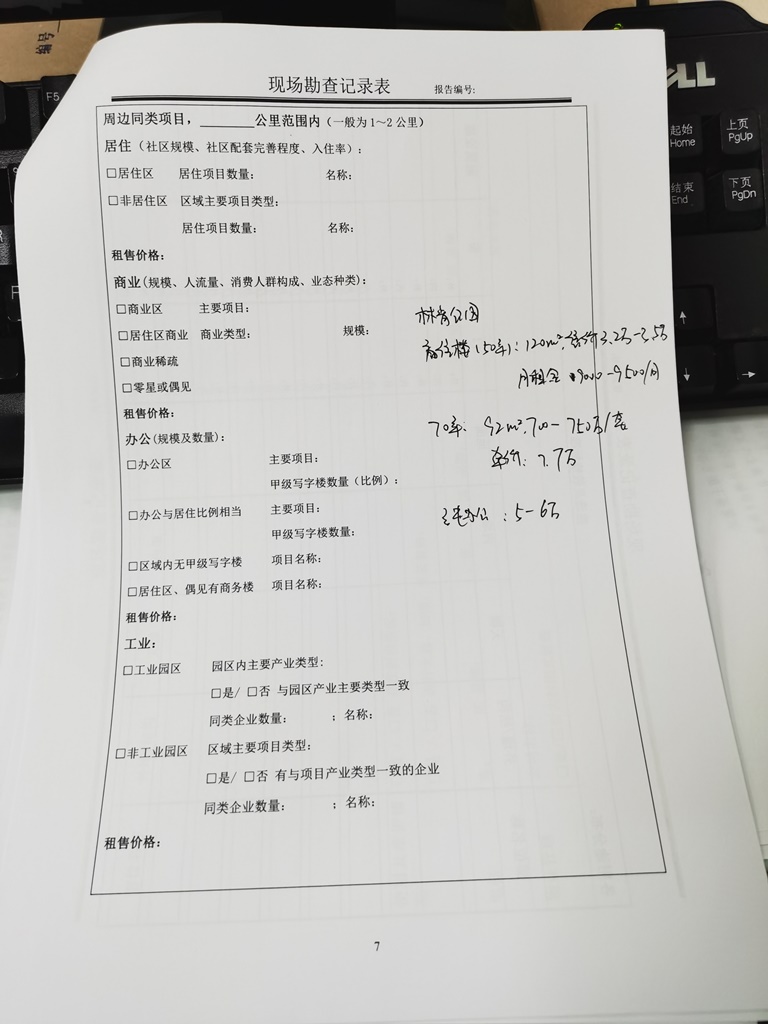 编号
F5
现场勘查记录表 报告编号:
周边同类项目，______公里范围内（一般为 1～2 公里）
居住（社区规模、社区配套完善程度、入住率）:
□居住区 居住项目数量: 名称:
□非居住区 区域主要项目类型:
居住项目数量: 名称:
租售价格:
商业(规模、人流量、消费人群构成、业态种类):
□商业区 主要项目:
□居住区商业 商业类型: 规模:
□商业稀疏
□零星或偶见
租售价格:
商住楼（50年）: 120m², 3.2万-3.5万
月租金 9000-9500/月
办公(规模及数量):
70年: 92m², 700-750万/套
单价: 7.7万
□办公区 主要项目:
甲级写字楼数量（比例）:
□办公与居住比例相当 主要项目:
办公: 5-6万
甲级写字楼数量:
□区域内无甲级写字楼 项目名称:
□居住区、偶见有商务楼 项目名称:
租售价格:
工业:
□工业园区 园区内主要产业类型:
□是/ □否 与园区产业主要类型一致
同类企业数量: ；名称:
□非工业园区 区域主要项目类型:
□是/ □否 有与项目产业类型一致的企业
同类企业数量: ；名称:
租售价格:
7
DELL
起始
Home
上页
PgUp
结束
End
下页
PgDn